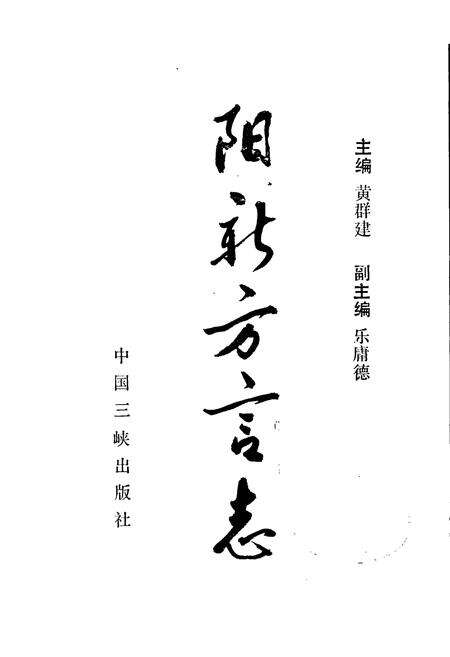 主编 黄群建 副主编 乐庸德
阳新方言志
中国三峡出版社